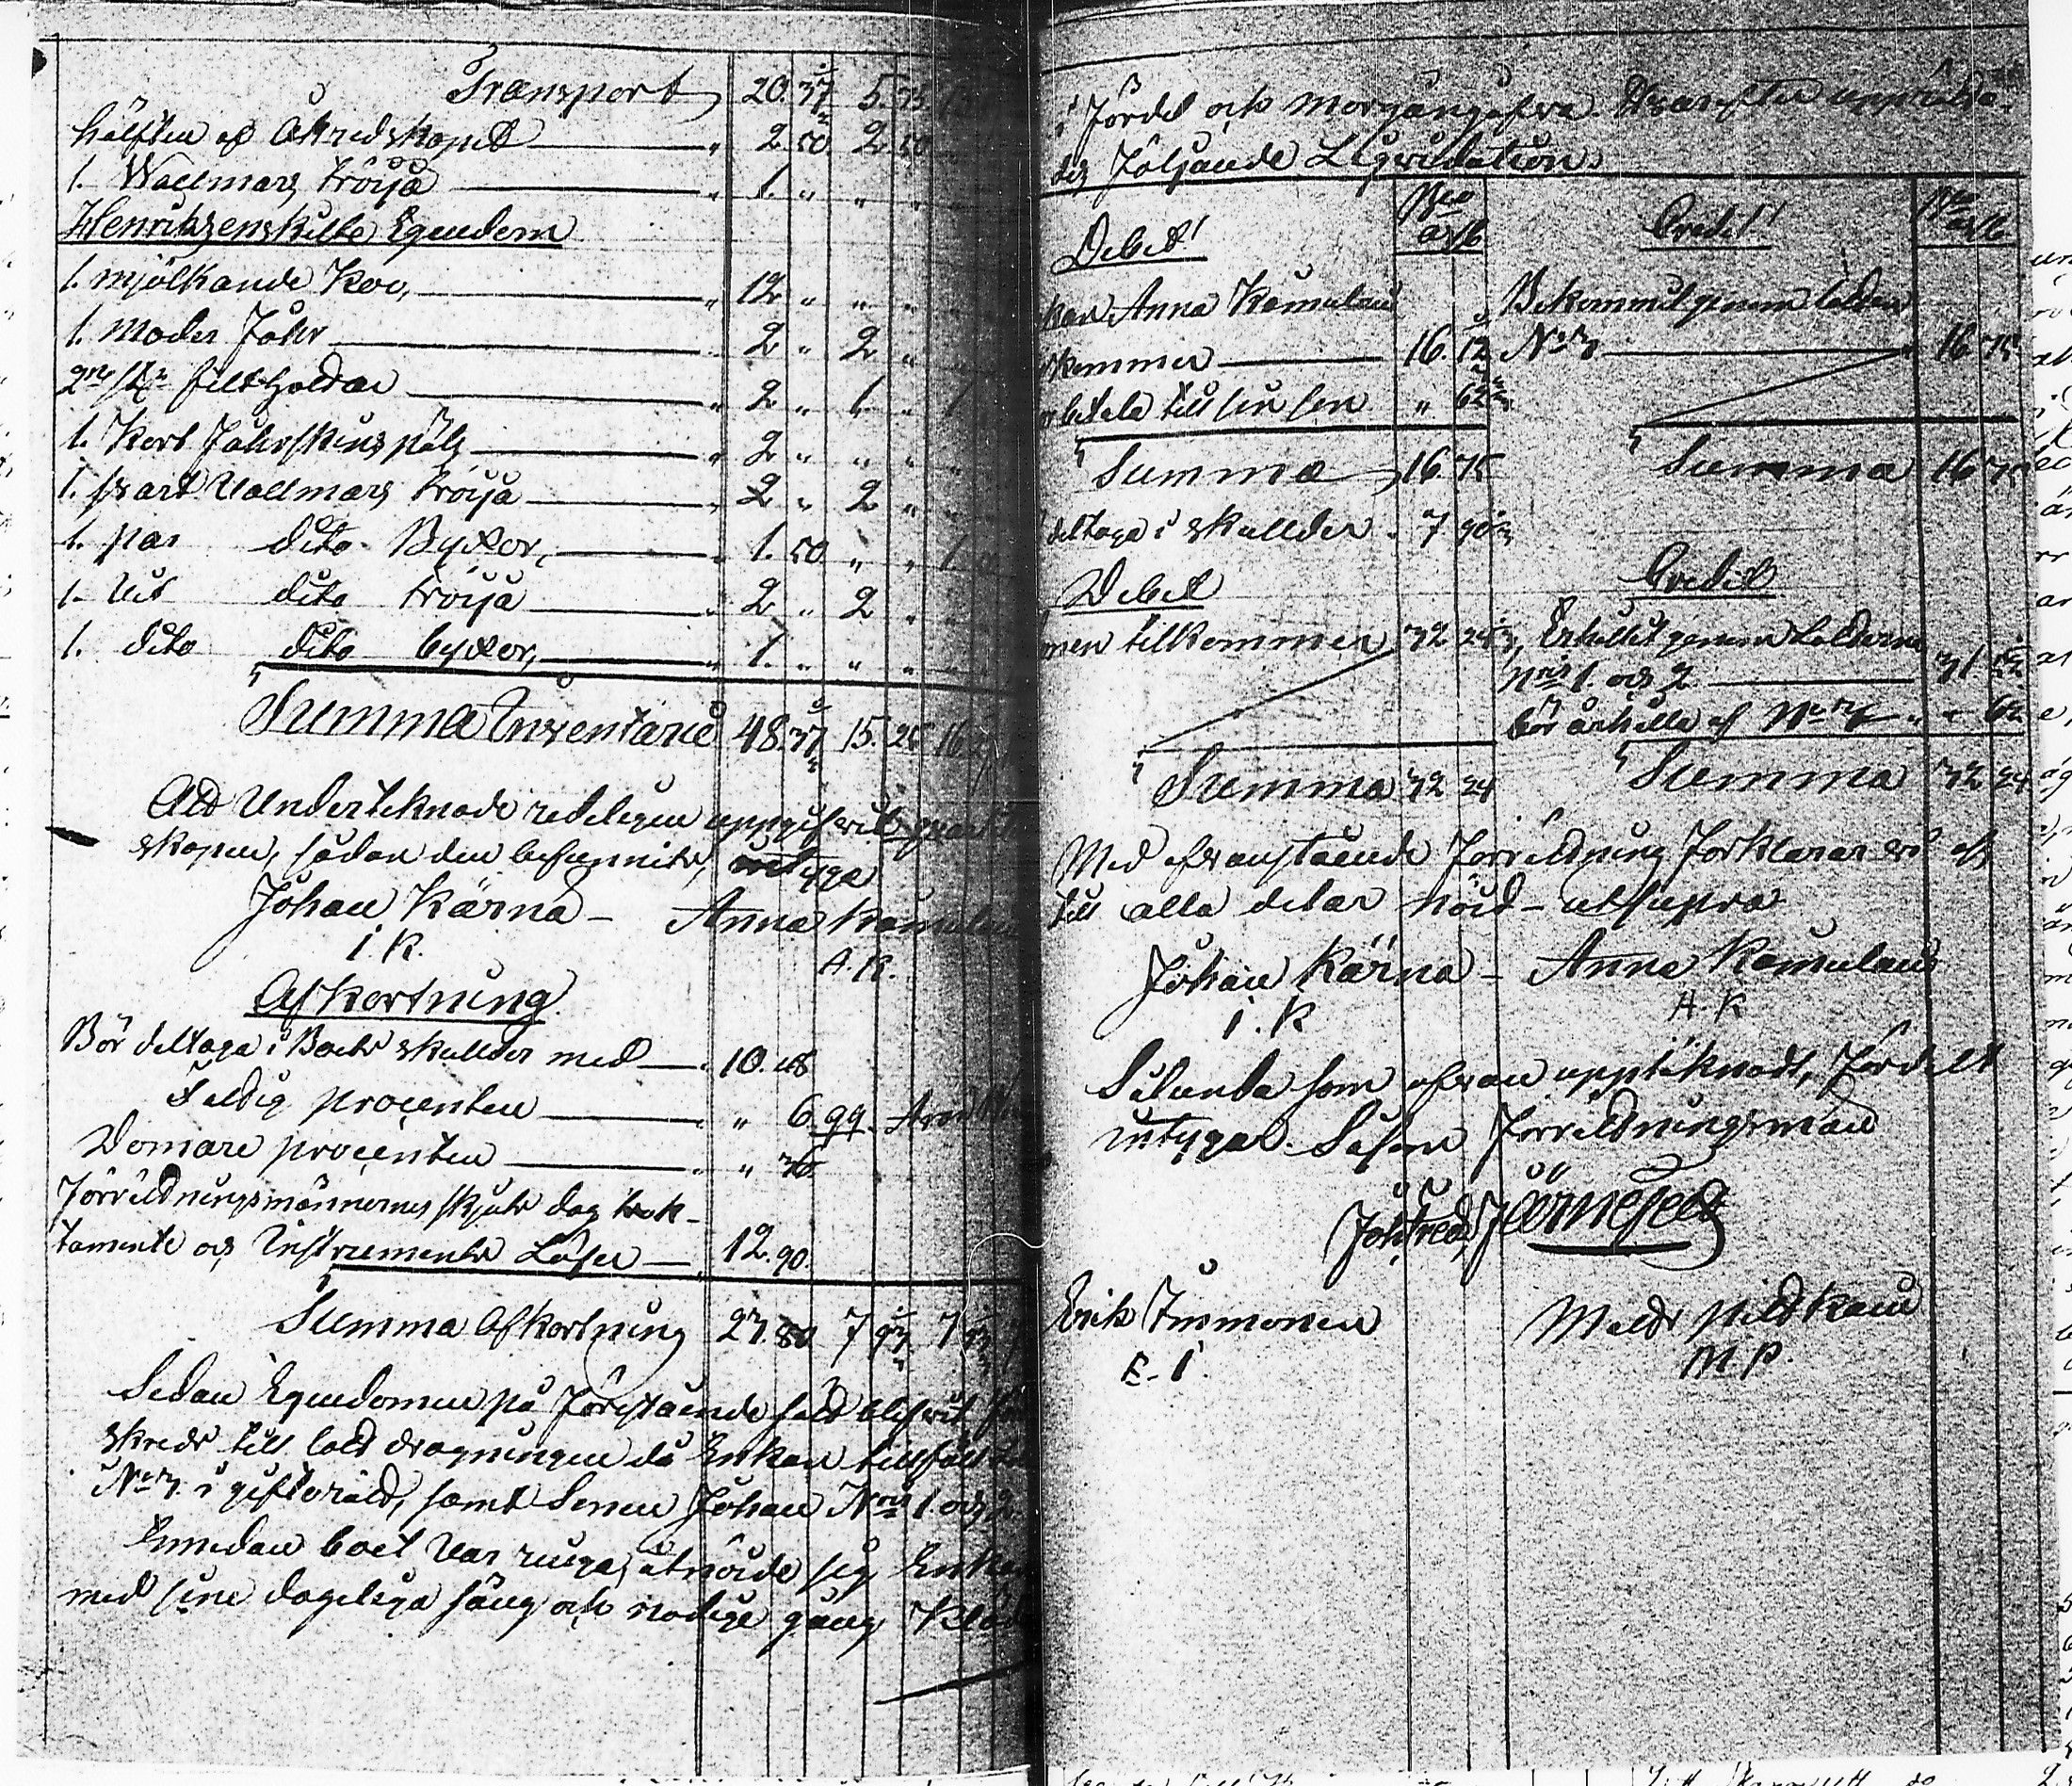 Transport 20. 37 5. 75
hälften af Åkredskapet 2 50 2 50
1. Wallmars tröija 1. " " "
Henrikzenskilte Egendom
1. mjölkande Koo, 12 " " "
1. moder Fåhr 2 " 2 "
2ne filthyldar 2 " 1. "
1. Kort Fåhrskins päls 2 " " "
1. svart Vallmars tröija 2 " 2 "
1. par dito Byxor, 1. 50 " "
1. Vit dito tröija 2 " 2 "
1. dito dito byxor, 1. " " "
Summa Inventarie 48. 37 15. 25 16
Ald Underteknade redeligen uppgifvit
skapen, sådan den befunnits,
Johan Kärnä – Anna Kämulain
I. K. A. K.
Afkortning.
Bör deltaga i Boets skullder med 10. 48
Fattig procenten " 6. 99.
Domare procenten "
Förrildningsmännernes skjuts dag trak-
tamente och Instruments Lösen 12. 90.
Summa Afkortning 27. 80 7 7
Sedan Egendomen på Förestående sätt blifvit
skreds till lott dragningen då Enkan tillföll
No 3. i giftorätt, samt Sonen Johan Nris 1. och 2.
Emedan boet var ringa, åtnöide sig Enkan
med sine dageliga säng och nodige gång Kläd
i Fördel och Morgångåfva. Hvarefter upprätta-
des Följande Liqvidation.
Debet Credit
kan Anna Kämulain Bekommit genom lotten
kommer 16. 12 No 3 16. 75
betala till sin son " 62
Summa 16. 75 Summa 16 75
deltaga i skullder. 7. 90
Debet Credit
men tilkommer 32 24 Erhållit genom Lotterna
Nris 1. och 2. 31.
bör erhålla af No 3 " 62
Summa 32 24 Summa 32 24
Med ofvanstående Förrildning Förklarar vi oss
till alla delar nöid – ut supra
Johan Kärnä – Anna Kämulain
I. K. A. K
Sålunda som ofvan uppteknadt, Fördelt
intygar. Såsom Förrildningsmän
Joh. Fred. Järnefelt
Erik Immonen Mats Pitkäin
E. I. M P.